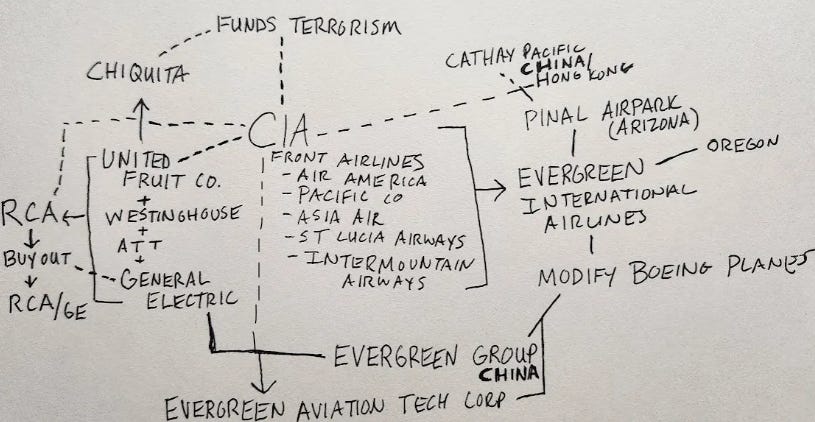 FUNDS TERRORISM
CHIQUITA
CATHAY PACIFIC
CHINA/
HONG KONG
CIA
PINAL AIRPARK
(ARIZONA)
UNITED
FRUIT CO.
+
WESTINGHOUSE
+
ATT
+
GENERAL
ELECTRIC
RCA
BUYOUT
RCA/GE
FRONT AIRLINES
- AIR AMERICA
- PACIFIC CO
- ASIA AIR
- ST LUCIA AIRWAYS
- INTERMOUNTAIN
AIRWAYS
EVERGREEN
INTERNATIONAL
AIRLINES
OREGON
MODIFY BOEING PLANES
EVERGREEN GROUP
CHINA
EVERGREEN AVIATION TECH CORP